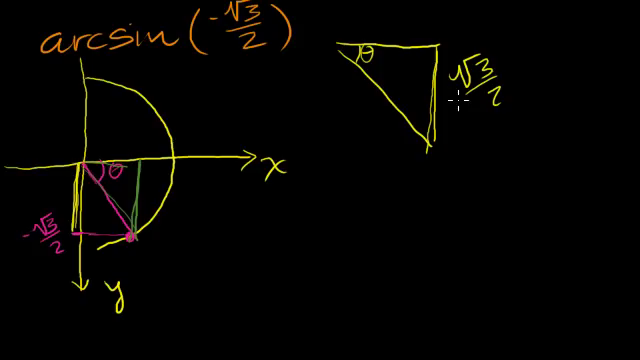 arcsin (-√3/2)
θ
√3/2
x
θ
-√3/2
y